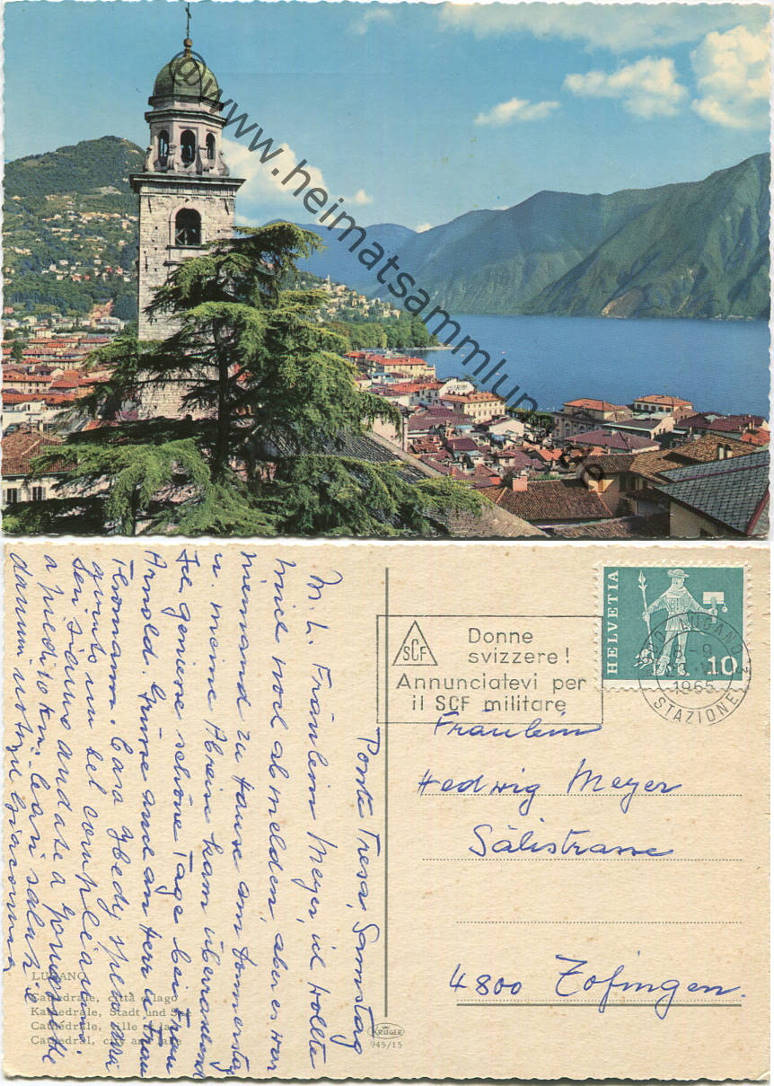 © www.heimatsammlung.de
Ponte Tresa, Samstag
M. L. Fräulein Meyer, ich wollte
mich noch abmelden, aber es war
niemand zu Hause am Donnerstag
u. meine Abreise kam überraschend
Ich geniesse schöne Tage bei Frau
Arnold. Grüsse auch an Herr u. Frau
Cara Hedy spero
un bel
Seri siamo andate a
a piedi 10 km. Cari saluti
LUGANO
Cattedrale, città e lago
Kathedrale, Stadt und See
Cathédrale, ville et lac
Cathedral, city and lake
KRÜGER
945/15
SCF
Donne
svizzere!
Annunciatevi per
il SCF militare
HELVETIA
10
LUGANO
8-9
1965
STAZIONE
Fräulein
Hedwig Meyer
Sälistrasse
4800 Zofingen.